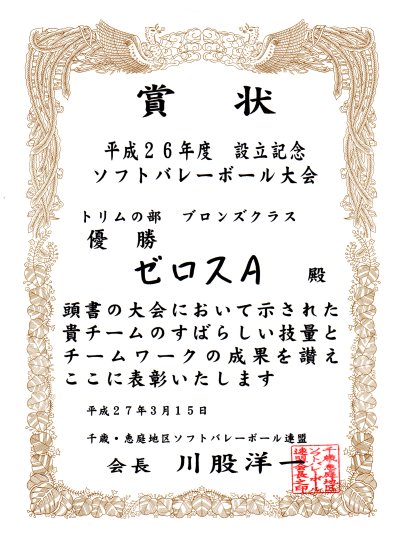 賞 状
平成26年度 設立記念
ソフトバレーボール大会
トリムの部 ブロンズクラス
優 勝
ゼロスA 殿
頭書の大会において示された
貴チームのすばらしい技量と
チームワークの成果を讃え
ここに表彰いたします
平成27年3月15日
千歳・恵庭地区ソフトバレーボール連盟
会長 川股洋一
千歳恵庭地区
ソフトバレーボール
連盟会長之印